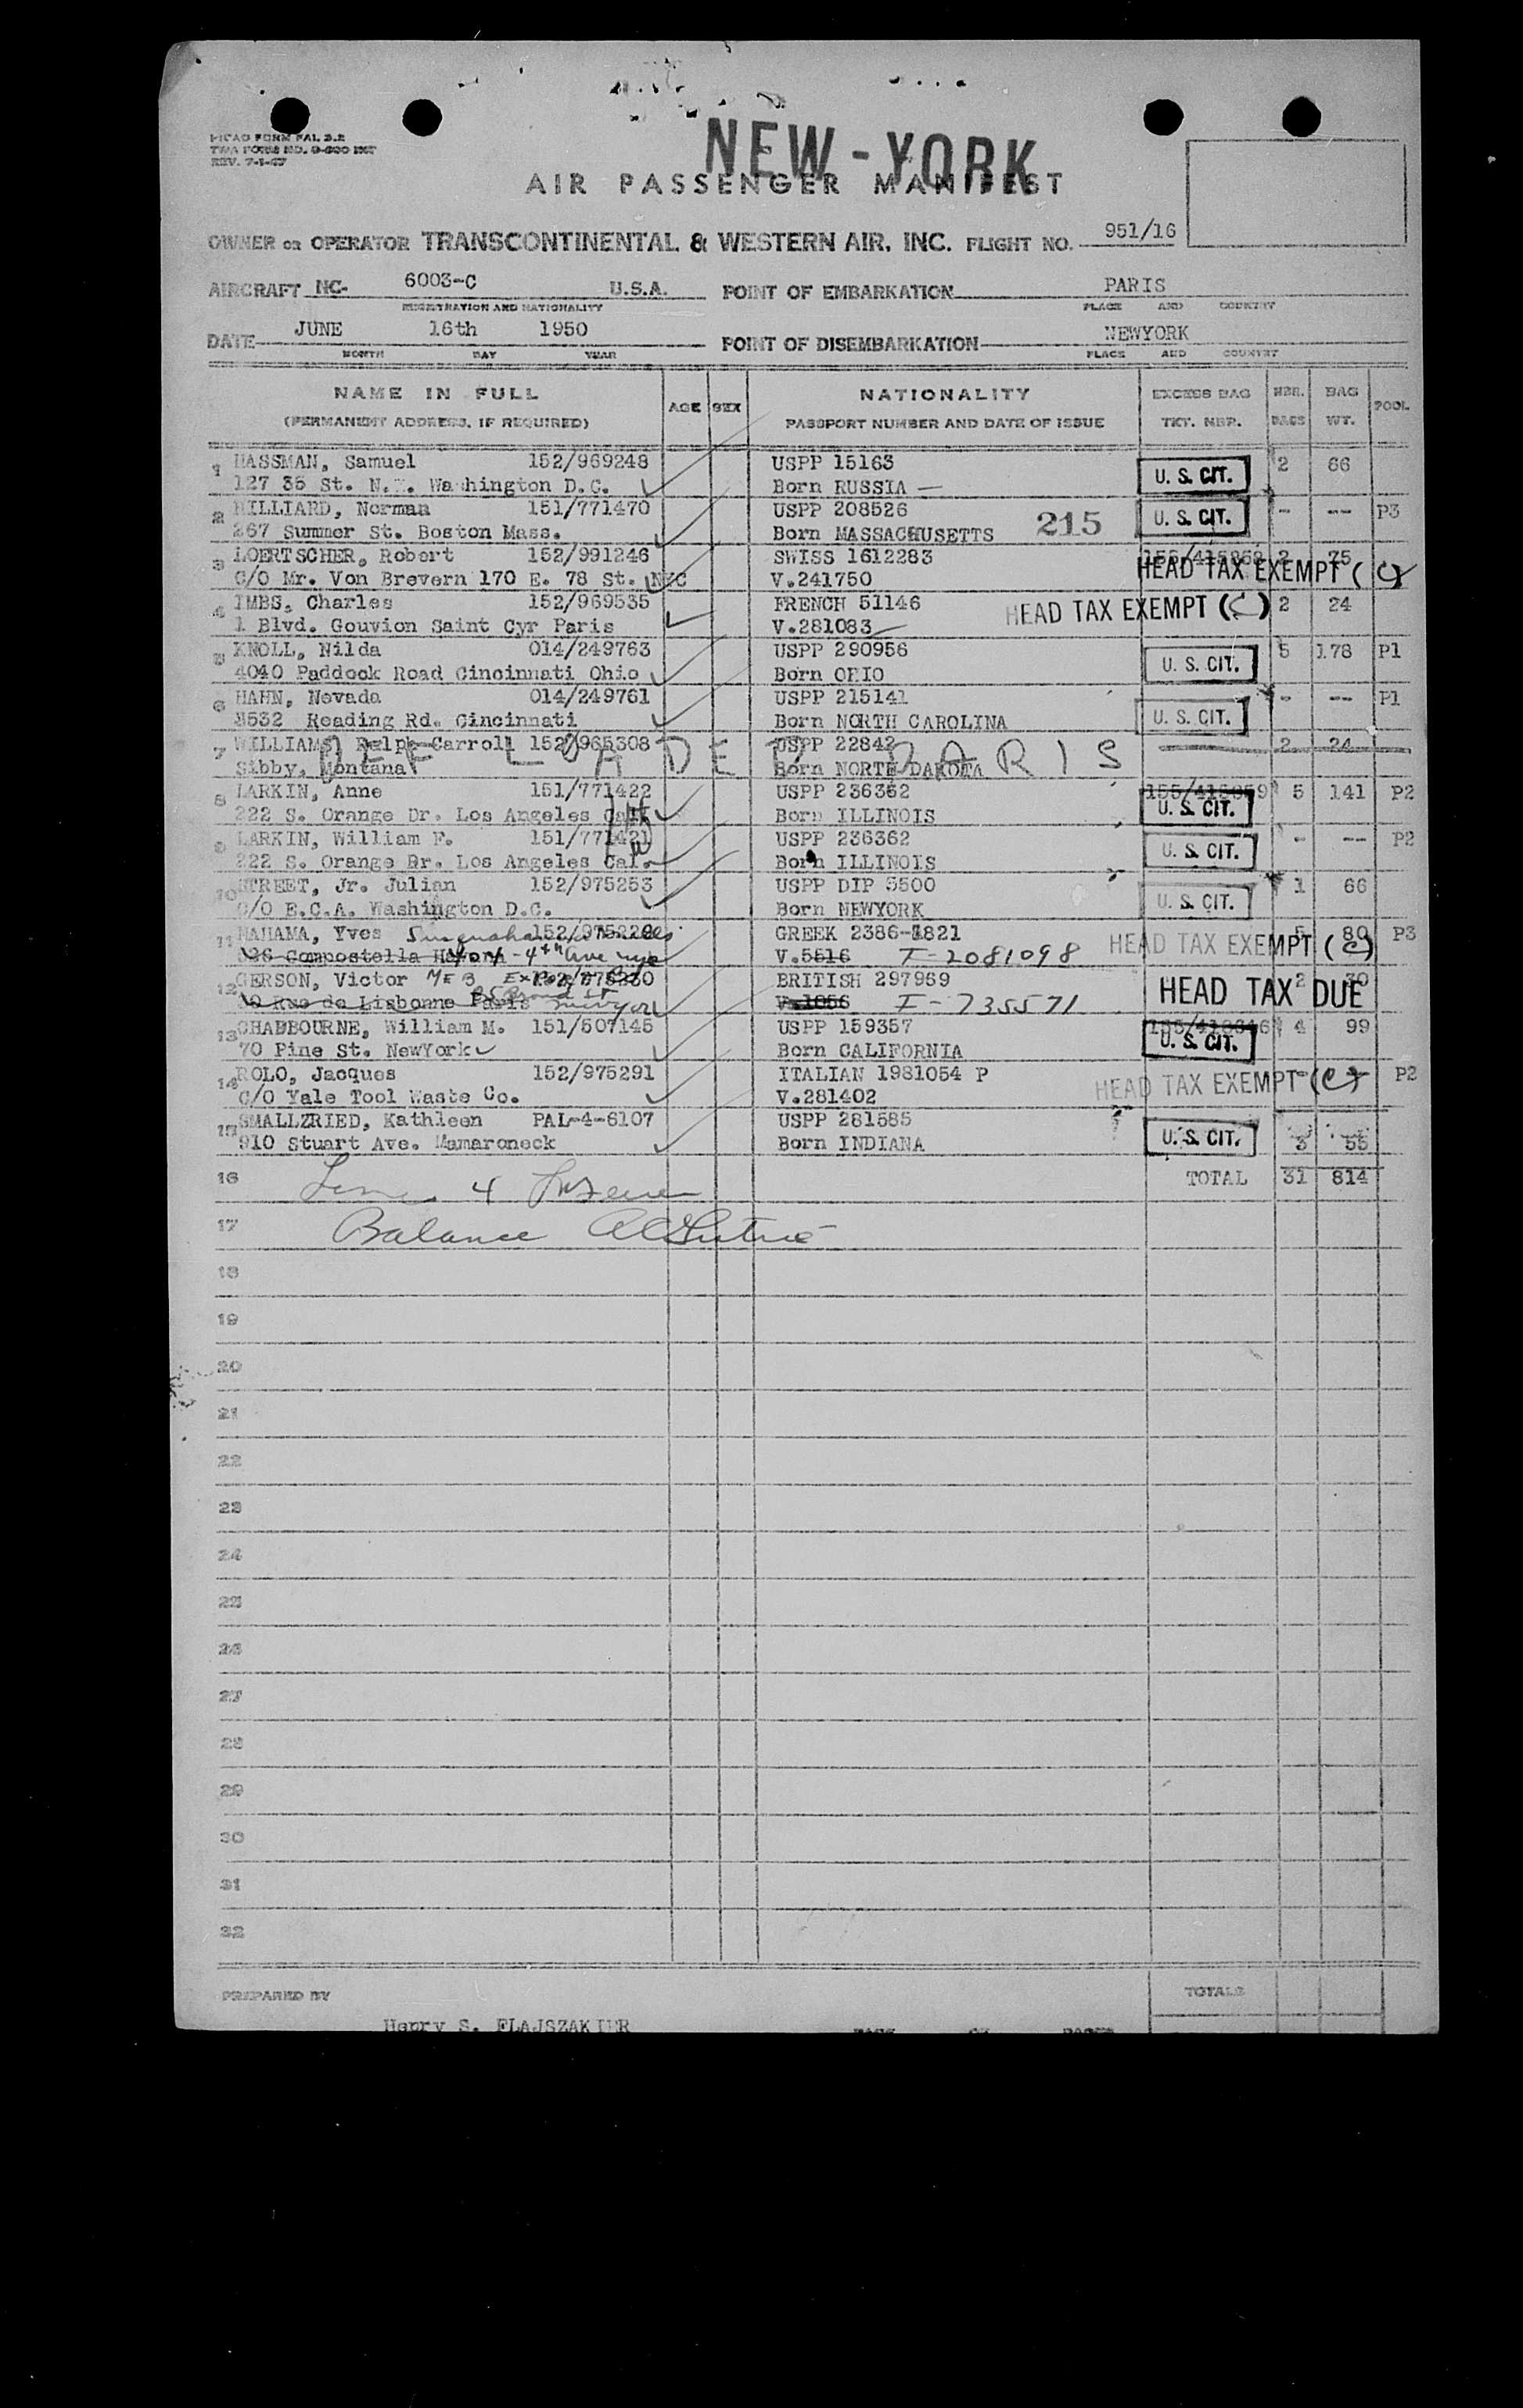 ICAO FORM FAL 3.2
TWA FORM NO. O-600 INT
REV. 7-1-47
NEW-YORK
AIR PASSENGER MANIFEST
OWNER OR OPERATOR TRANSCONTINENTAL & WESTERN AIR, INC. FLIGHT NO. 951/16
AIRCRAFT NC- 6003-C U.S.A. POINT OF EMBARKATION PARIS
REGISTRATION AND NATIONALITY PLACE AND COUNTRY
DATE JUNE 16th 1950 POINT OF DISEMBARKATION NEWYORK
MONTH DAY YEAR PLACE AND COUNTRY
NAME IN FULL AGE SEX NATIONALITY EXCESS BAG NBR. BAG POOL
(PERMANENT ADDRESS, IF REQUIRED) PASSPORT NUMBER AND DATE OF ISSUE TKT. NBR. BAGS WT.
1 HASSMAN, Samuel 152/969248 USPP 15163 U. S. CIT. 2 66
127 35 St. N.W. Washington D.C. Born RUSSIA
2 HILLIARD, Norman 151/771470 USPP 208526 215 U. S. CIT. - -- P3
267 Summer St. Boston Mass. Born MASSACHUSETTS
3 LOERTSCHER, Robert 152/991246 SWISS 1612283 2 75
C/O Mr. Von Brevern 170 E. 78 St. NYC V.241750 HEAD TAX EXEMPT (C)
4 IMBS, Charles 152/969535 FRENCH 51146 HEAD TAX EXEMPT (C) 2 24
1 Blvd. Gouvion Saint Cyr Paris V.281083
5 KNOLL, Nilda 014/249763 USPP 290956 U. S. CIT. 5 178 P1
4040 Paddock Road Cincinnati Ohio Born OHIO
6 HAHN, Nevada 014/249761 USPP 215141 U. S. CIT. - -- P1
8532 Reading Rd. Cincinnati Born NORTH CAROLINA
7 WILLIAMS, Ralph Carroll 152/965308 USPP 22842 2 24
OFF LOADED PARIS
Sibby, Montana Born NORTH DAKOTA
8 LARKIN, Anne 151/771422 USPP 236362 5 141 P2
222 S. Orange Dr. Los Angeles Cal. Born ILLINOIS U. S. CIT.
9 LARKIN, William F. 151/771421 USPP 236362 U. S. CIT. - -- P2
222 S. Orange Dr. Los Angeles Cal. Born ILLINOIS
10 STREET, Jr. Julian 152/975253 USPP DIP 5500 U. S. CIT. 1 66
C/O E.C.A. Washington D.C. Born NEWYORK
11 NAHAMA, Yves Susquehanna Mills GREEK 2386-1821 HEAD TAX EXEMPT (C) 5 80 P3
Compostella 4th Ave nyc V.5516 I-2081098
12 GERSON, Victor BRITISH 297969 HEAD TAX DUE 2 30
Rue de Lisbonne Paris New York V.1056 I-735571
13 CHADBOURNE, William M. 151/507145 USPP 159357 4 99
70 Pine St. NewYork Born CALIFORNIA U. S. CIT.
14 ROLO, Jacques 152/975291 ITALIAN 1981054 P HEAD TAX EXEMPT (C) P2
C/O Yale Tool Waste Co. V.281402
15 SMALLZRIED, Kathleen PAL-4-6107 USPP 281585
910 Stuart Ave. Mamaroneck Born INDIANA U. S. CIT. 3 55
16 TOTAL 31 814
17 Balance
18
19
20
21
22
23
24
25
26
27
28
29
30
31
32
PREPARED BY TOTALS
Henry S. FLAJSZAKIER PAGE OF PAGES